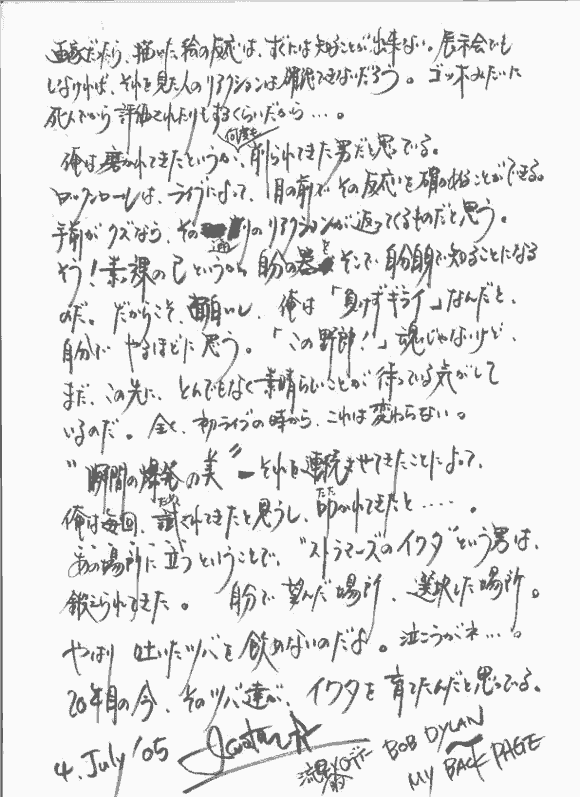 画家だったら、描いた絵の反応は、すぐには知ることが出来ない。展示会でも
しなければ、それを見た人のリアクションは確認できないだろう。ゴッホみたいに
死んでから評価されたりもするくらいだから…。
何度も
俺は磨かれてきたというか、削られてきた男だと思っている。
ロックンロールは、ライブによって、目の前でその反応を確かめることができる。
手前がクズなら、その通りのリアクションが返ってくるものだと思う。
そう！素っ裸の己というか自分の器をそこで自分自身で知ることになる
のだ。だからこそ、面白いし、俺は「負けずギライ」なんだと、
自分で やるほどに思う。「この野郎！」魂じゃないけど、
まだ、この先に、とんでもなく素晴らしいことが待っている気がして
いるのだ。全く、初ライブの時から、これは変わらない。
"瞬間の爆発の美" ーそれを連続させてきたことによって、
俺は毎回、試されてきたと思うし、叩かれてきたと……。
あの場所に立つということで、"ストラマーズのイワタ"という男は、
鍛えられてきた。 自分で望んだ場所、選択した場所。
やはり 吐いたツバを飲めないのだよ。泣こうがネ…。
20年目の今、そのツバ達が、イワタを育てたんだと思っている。
4. July '05
BOB DYLAN
MY BACK PAGE